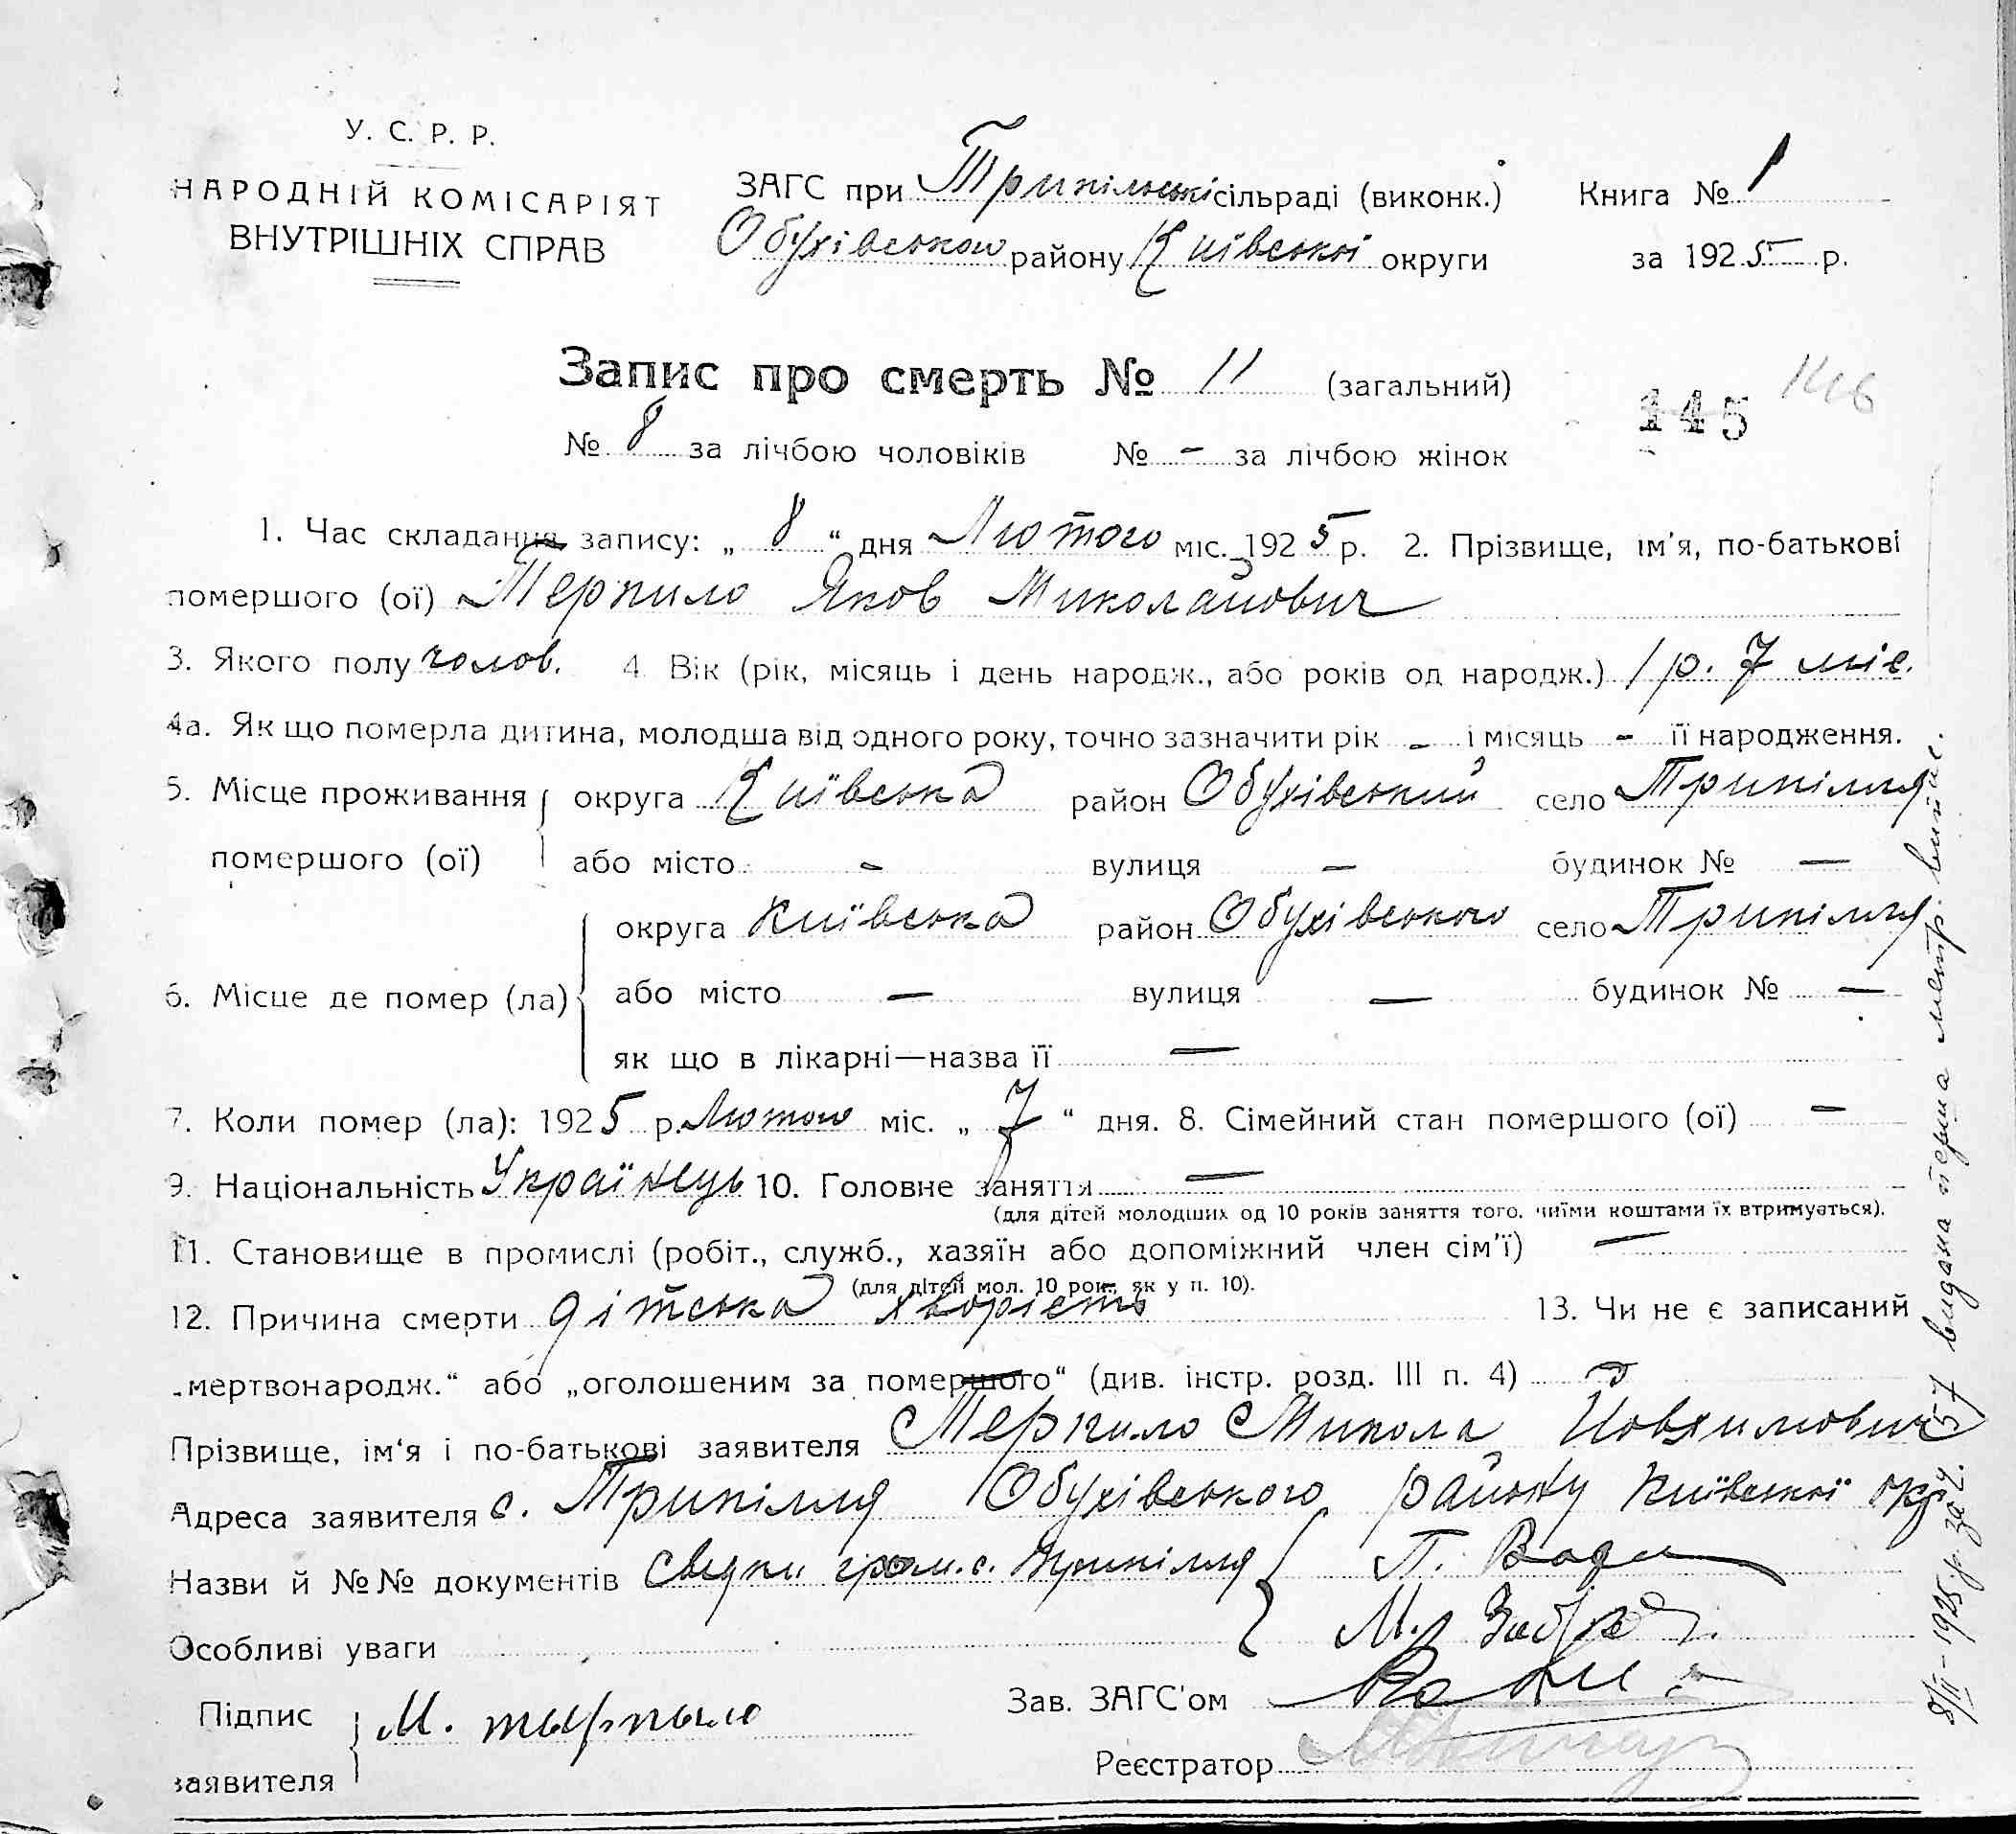 У. С. Р. Р.
НАРОДНІЙ КОМІСАРІЯТ
ВНУТРІШНІХ СПРАВ
ЗАГС при Трипільскі сільраді (виконк.) Книга № 1
Обухівського району Київської округи за 1925 р.
Запис про смерть № 11 (загальний)
145 146
№ 8 за лічбою чоловіків № - за лічбою жінок
1. Час складання запису: „ 8 “ дня Лютого міс. 1925 р. 2. Прізвище, ім'я, по-батькові
помершого (ої) Терпило Яков Миколайович
3. Якого полу чолов. 4 Вік (рік, місяць і день народж., або років од народж.) 1 р. 7 міс.
4а. Як що померла дитина, молодша від одного року, точно зазначити рік - і місяць - її народження.
5. Місце проживання округа Київська район Обухівський село Трипілля
помершого (ої) або місто - вулиця — будинок № —
округа Київська район Обухівського село Трипілля
6. Місце де помер (ла) або місто — вулиця — будинок № —
як що в лікарні—назва її —
7. Коли помер (ла): 1925 р. Лютого міс. „ 7 “ дня. 8. Сімейний стан помершого (ої) —
9. Національність Українець 10. Головне заняття —
(для дітей молодших од 10 років заняття того, чиїми коштами їх втримується).
11. Становище в промислі (робіт., служб., хазяїн або допоміжний член сім'ї) —
(для дітей мол. 10 рок., як у п. 10).
12. Причина смерти дітська хворість 13. Чи не є записаний
„мертвонародж.“ або „оголошеним за помершого“ (див. інстр. розд. III п. 4)
Прізвище, ім'я і по-батькові заявителя Терпило Микола Йовхимович
Адреса заявителя с. Трипілля Обухівського району Київської окр.
Назви й №№ документів Сведки гром. с. Трипілля П.
Особливі уваги М.
Підпис заявителя М. тырпыло
Зав. ЗАГС'ом
Реєстратор
8/II-1925 р. за ч. 57 видана перша метр. випис.